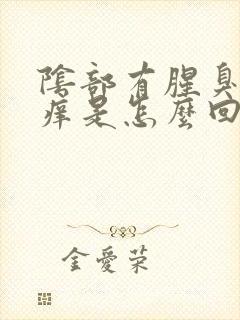 陰部有腥臭
痒是怎麼回
金愛荣